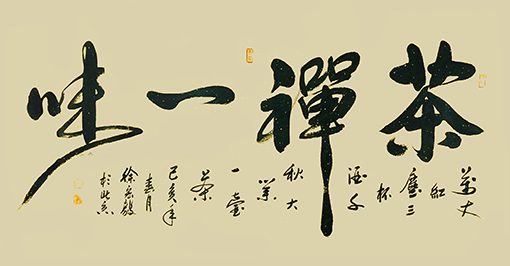 茶禪一味
萬丈
紅
塵三
杯
酒千
秋大
業
一壺
茶
己亥年
春月
徐毅
於北京